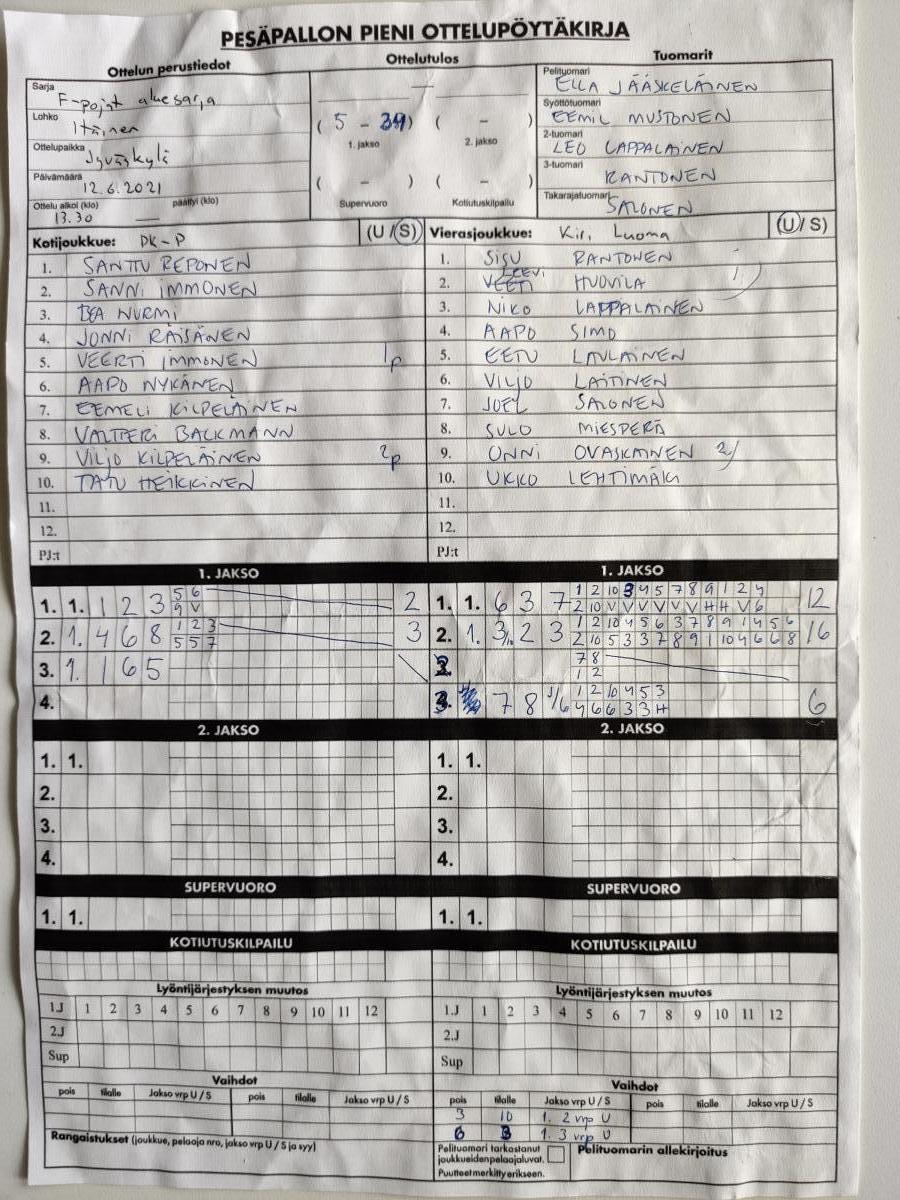 PESÄPALLON PIENI OTTELUPÖYTÄKIRJA
Ottelun perustiedot
Ottelutulos
Tuomarit
Sarja
F-pojat aluesarja
Lohko
Itäinen
Ottelupaikka
Jyväskylä
Päivämäärä
12.6.2021
Ottelu alkoi (klo) päättyi (klo)
13.30 —
—
( 5 - 34 ) ( - )
1. jakso 2. jakso
( - ) ( - )
Supervuoro Kotiutuskilpailu
Pelituomari
ELLA JÄÄSKELÄINEN
Syöttötuomari
EEMIL MUSTONEN
2-tuomari
LEO LAPPALAINEN
3-tuomari
RANTONEN
Takarajatuomari
SALONEN
Kotijoukkue: DK-P (U / S)
1. SANTTU REPONEN
2. SANNI IMMONEN
3. BEA NURMI
4. JONNI RÄISÄNEN
5. VEERTI IMMONEN 1p
6. AAPO NYKÄNEN
7. EEMELI KILPELÄINEN
8. VALTTERI BACKMANN
9. VILJO KILPELÄINEN 2p
10. TATU HEIKKINEN
11.
12.
PJ:t
Vierasjoukkue: Kiri, Luoma (U / S)
1. SISU RANTONEN
2. LEEVI HUOVILA 1)
3. NIKO LAPPALAINEN
4. AAPO SIMO
5. EETU LAULAINEN
6. VILJO LAITINEN
7. JOEL SALONEN
8. SULO MIESPERÄ
9. ONNI OVASKAINEN 2)
10. UKKO LEHTIMÄKI
11.
12.
PJ:t
1. JAKSO
5 6
1. 1. 1 2 3 2
9 V
1 2 3
2. 1. 4 6 8 3
5 5 7
3. 1. 1 6 5
4.
1. JAKSO
1 2 10 3 4 5 7 8 9 1 2 4
1. 1. 6 3 7 12
2 10 V V V V V V H H V 6
1 2 10 4 5 6 3 7 8 9 1 4 5 6
2. 1. 3/10 2 3 16
2 10 5 3 3 7 8 9 1 10 4 6 6 8
7 8
1 2
1 2 10 4 5 3
3. 7 8 3/6 6
4 6 6 3 3 H
2. JAKSO
1. 1.
2.
3.
4.
2. JAKSO
1. 1.
2.
3.
4.
SUPERVUORO
1. 1.
SUPERVUORO
1. 1.
KOTIUTUSKILPAILU
KOTIUTUSKILPAILU
Lyöntijärjestyksen muutos
1.J 1 2 3 4 5 6 7 8 9 10 11 12
2.J
Sup
Lyöntijärjestyksen muutos
1.J 1 2 3 4 5 6 7 8 9 10 11 12
2.J
Sup
Vaihdot
pois tilalle Jakso vrp U / S pois tilalle Jakso vrp U / S
Vaihdot
pois tilalle Jakso vrp U / S pois tilalle Jakso vrp U / S
3 10 1. 2 vrp U
6 3 1. 3 vrp U
Rangaistukset (joukkue, pelaaja nro, jakso vrp U / S ja syy)
Pelituomari tarkastanut
joukkueiden pelaajaluvat.
Puutteet merkitty erikseen.
Pelituomarin allekirjoitus